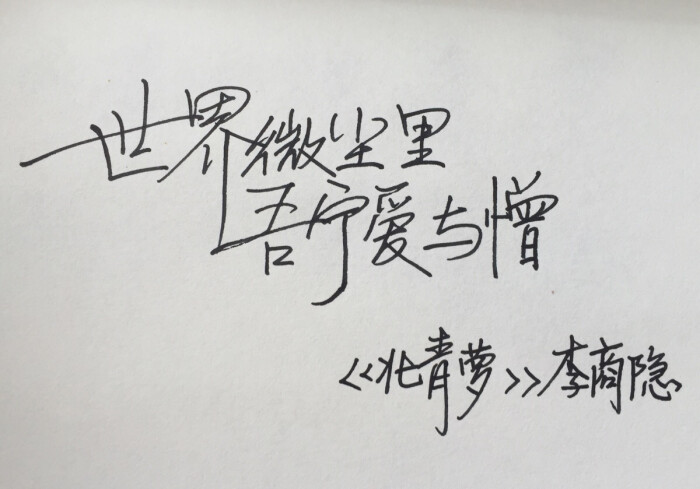 世界微尘里
吾宁爱与憎
<<北青萝>>李商隐